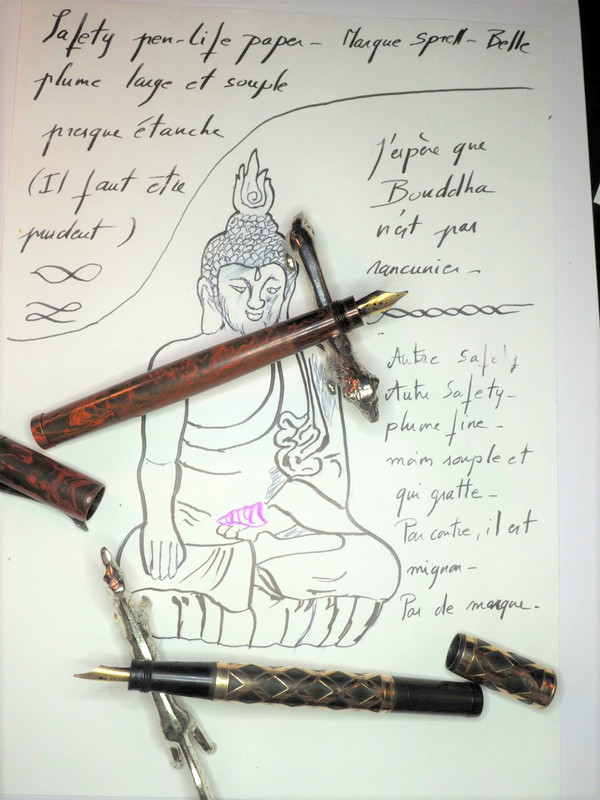 Safety pen-life paper- Marque Spell- Belle
plume large et souple
presque étanche
(Il faut etre
prudent )
J'espère que
Bouddha
n'est pas
rancunier-
Autre Safety
Autre Safety-
plume fine-
moins souple et
qui gratte-
Par contre, il est
mignon-
Pas de marque.